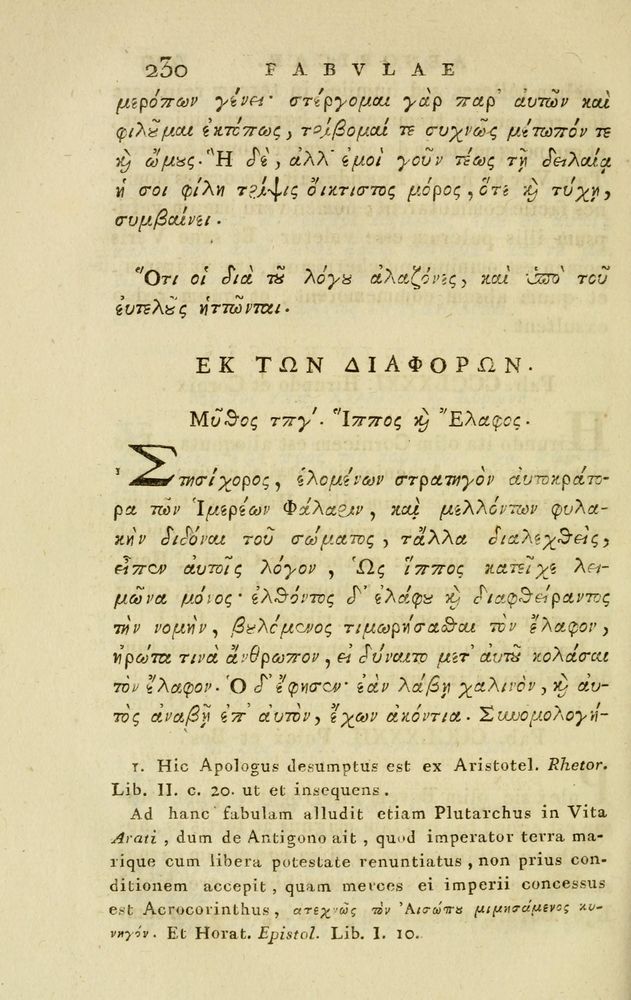 230 FABVLAE
μερόπων γένει· στέργομαι γὰρ παρ' ἀυτῶν καὶ
φιλοῦμαι ἐκτόπως, τρίβομαί τε συχνῶς μέτωπόν τε
καὶ ὤμους. Ἡ δὲ, ἀλλ' ἐμοὶ γοῦν τέως τῇ δειλαίᾳ
ἥ σοι φίλη τρίψις ὄικτιστος μόρος, ὅτε καὶ τύχῃ,
συμβαίνει.
Ὅτι οἱ διὰ τοῦ λόγου ἀλαζόνες, καὶ ὑπὸ τοῦ
ἐυτελοῦς ἡττῶνται.
ΕΚ ΤΩΝ ΔΙΑΦΟΡΩΝ.
Μῦθος τπγ'. Ἵππος καὶ Ἔλαφος.
¹ Στησίχορος, ἑλομένων στρατηγὸν ἀυτοκράτο-
ρα τῶν Ἱμερέων Φάλαριν, καὶ μελλόντων φυλα-
κὴν διδόναι τοῦ σώματος, τἄλλα διαλεχθεὶς,
εἶπεν ἀυτοῖς λόγον, Ὡς ἵππος κατεῖχε λει-
μῶνα μόνος· ἐλθόντος δ' ἐλάφου καὶ διαφθείραντος
τὴν νομὴν, βουλόμενος τιμωρήσασθαι τὸν ἔλαφον,
ἠρώτα τινὰ ἄνθρωπον, εἰ δύναιτο μετ' ἀυτοῦ κολάσαι
τὸν ἔλαφον. Ὁ δ' ἔφησεν· ἐὰν λάβῃ χαλινὸν, καὶ ἀυ-
τὸς ἀναβῇ ἐπ' ἀυτὸν, ἔχων ἀκόντια. Συνομολογή-
1. Hic Apologus desumptus est ex Aristotel. Rhetor.
Lib. II. c. 20. ut et insequens.
Ad hanc fabulam alludit etiam Plutarchus in Vita
Arati, dum de Antigono ait, quod imperator terra ma-
rique cum libera potestate renuntiatus, non prius con-
ditionem accepit, quam merces ei imperii concessus
est Acrocorinthus, ἀτεχνῶς τὸν Ἀισώπου μιμησάμενος κυ-
νηγόν. Et Horat. Epistol. Lib. I. 10.